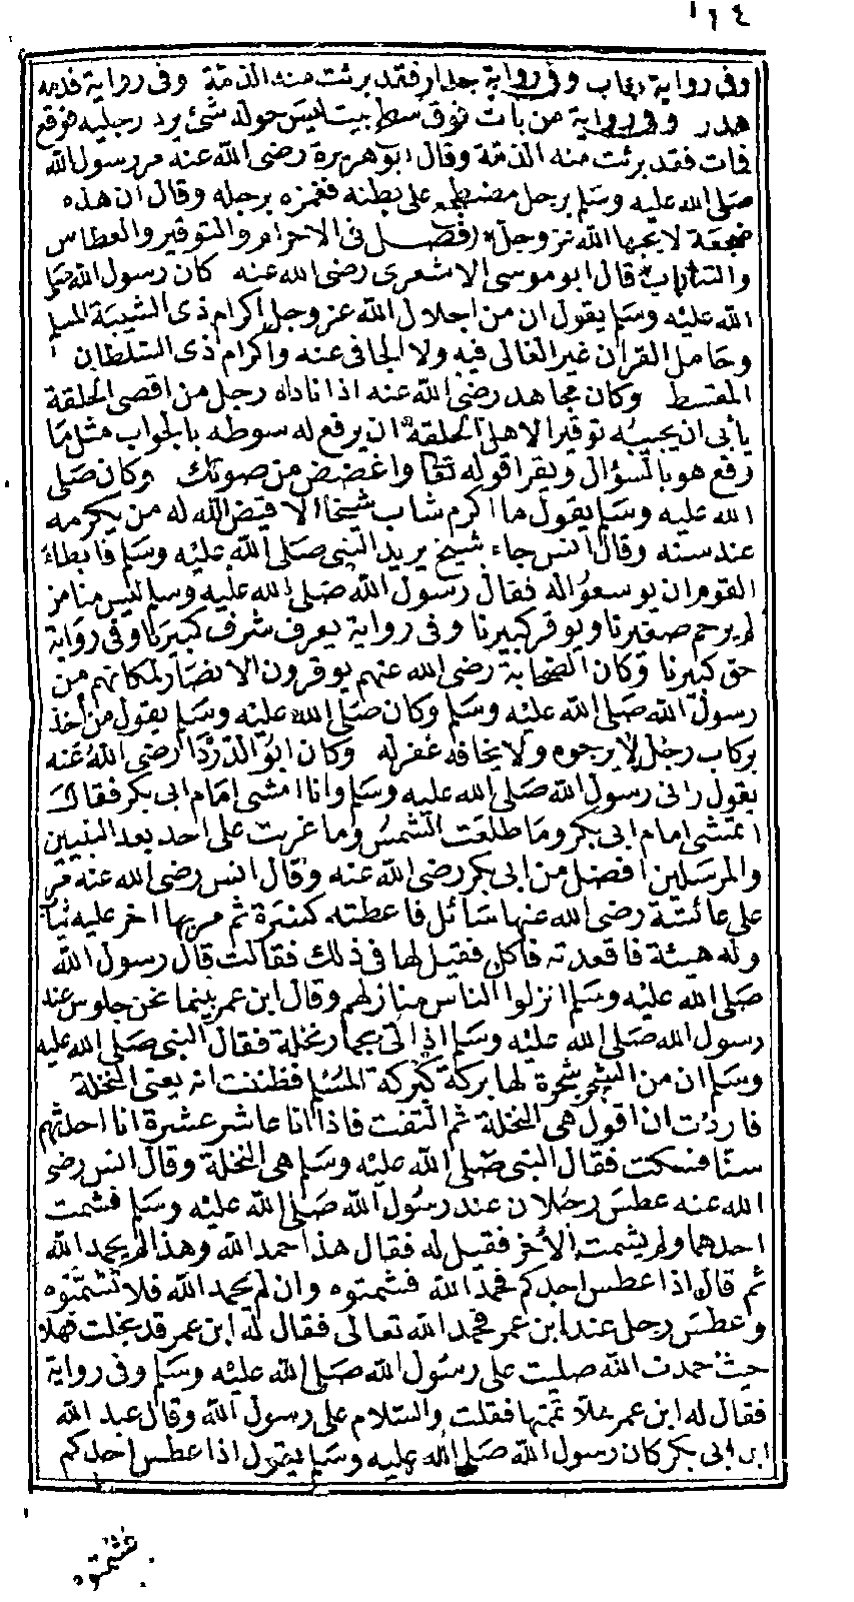 ١٦٤
وفى رواية حجاب وفى رواية جدار فقد برئت منه الذمة وفى رواية فدمه
هدر وفى رواية من بات فوق سطح بيت ليس حوله شئ يرد رجليه فوقع
فمات فقد برئت منه الذمة وقال ابو هريرة رضى الله عنه مر رسول الله
صلى الله عليه وسلم برجل مضطجع على بطنه فغمزه برجله وقال ان هذه
ضجعة لا يحبها الله عز وجل (فصل فى الاحترام والتوقير والعطاس
والتثاؤب) قال ابو موسى الاشعرى رضى الله عنه كان رسول الله صلى
الله عليه وسلم يقول ان من اجلال الله عز وجل اكرام ذى الشيبة المسلم
وحامل القرآن غير الغالى فيه ولا الجافى عنه واكرام ذى السلطان
المقسط وكان مجاهد رضى الله عنه اذا ناداه رجل من اقصى الحلقة
يأبى ان يجيبه توقيرا لاهل الحلقة ان يرفع له سوطه بالجواب مثل ما
رفع هو بالسؤال ويقرا قوله تعالى واغضض من صوتك وكان صلى
الله عليه وسلم يقول ما اكرم شاب شيخا الا قيض الله له من يكرمه
عند سنه وقال انس جاء شيخ يريد النبى صلى الله عليه وسلم فابطاء
القوم ان يوسعوا له فقال رسول الله صلى الله عليه وسلم ليس منا من
لم يرحم صغيرنا ويوقر كبيرنا وفى رواية يعرف شرف كبيرنا وفى رواية
حق كبيرنا وكان الصحابة رضى الله عنهم يوقرون الانصار لمكانهم من
رسول الله صلى الله عليه وسلم وكان صلى الله عليه وسلم يقول من أخذ
بركاب رجل لا يرجوه ولا يخافه غفر له وكان ابو الدرداء رضى الله عنه
يقول رانى رسول الله صلى الله عليه وسلم وانا امشى امام ابى بكر فقال
اتمشى امام ابى بكر وما طلعت الشمس وما غربت على احد بعد النبيين
والمرسلين افضل من ابى بكر رضى الله عنه وقال انس رضى الله عنه مر
على عائشة رضى الله عنها سائل فاعطته كسرة ثم مر بها اخر عليه ثياب
وله هيئة فاقعدته فاكل فقيل لها فى ذلك فقالت قال رسول الله
صلى الله عليه وسلم انزلوا الناس منازلهم وقال ابن عمر بينما نحن جلوس عند
رسول الله صلى الله عليه وسلم اذ اتى بجمار نخلة فقال النبى صلى الله عليه
وسلم ان من الشجر شجرة لها بركة كبركة المسلم فظننت انه يعنى النخلة
فاردت ان اقول هى النخلة ثم التفت فاذا انا عاشر عشرة انا احدثهم
سنا فسكت فقال النبى صلى الله عليه وسلم هى النخلة وقال انس رضى
الله عنه عطس رجلان عند رسول الله صلى الله عليه وسلم فشمت
احدهما ولم يشمت الأخر فقيل له فقال هذا حمد الله وهذا لم يحمد الله
ثم قال اذا عطس احدكم فحمد الله فشمتوه وان لم يحمد الله فلا تشمتوه
وعطس رجل عند ابن عمر فحمد الله تعالى فقال له ابن عمر قد بخلت فهلا
حيث حمدت الله صليت على رسول الله صلى الله عليه وسلم وفى رواية
فقال له ابن عمر هلا تممتها فقلت والسلام على رسول الله وقال عبد الله
ابن ابى بكر كان رسول الله صلى الله عليه وسلم يقول اذا عطس احدكم
فشمتوه